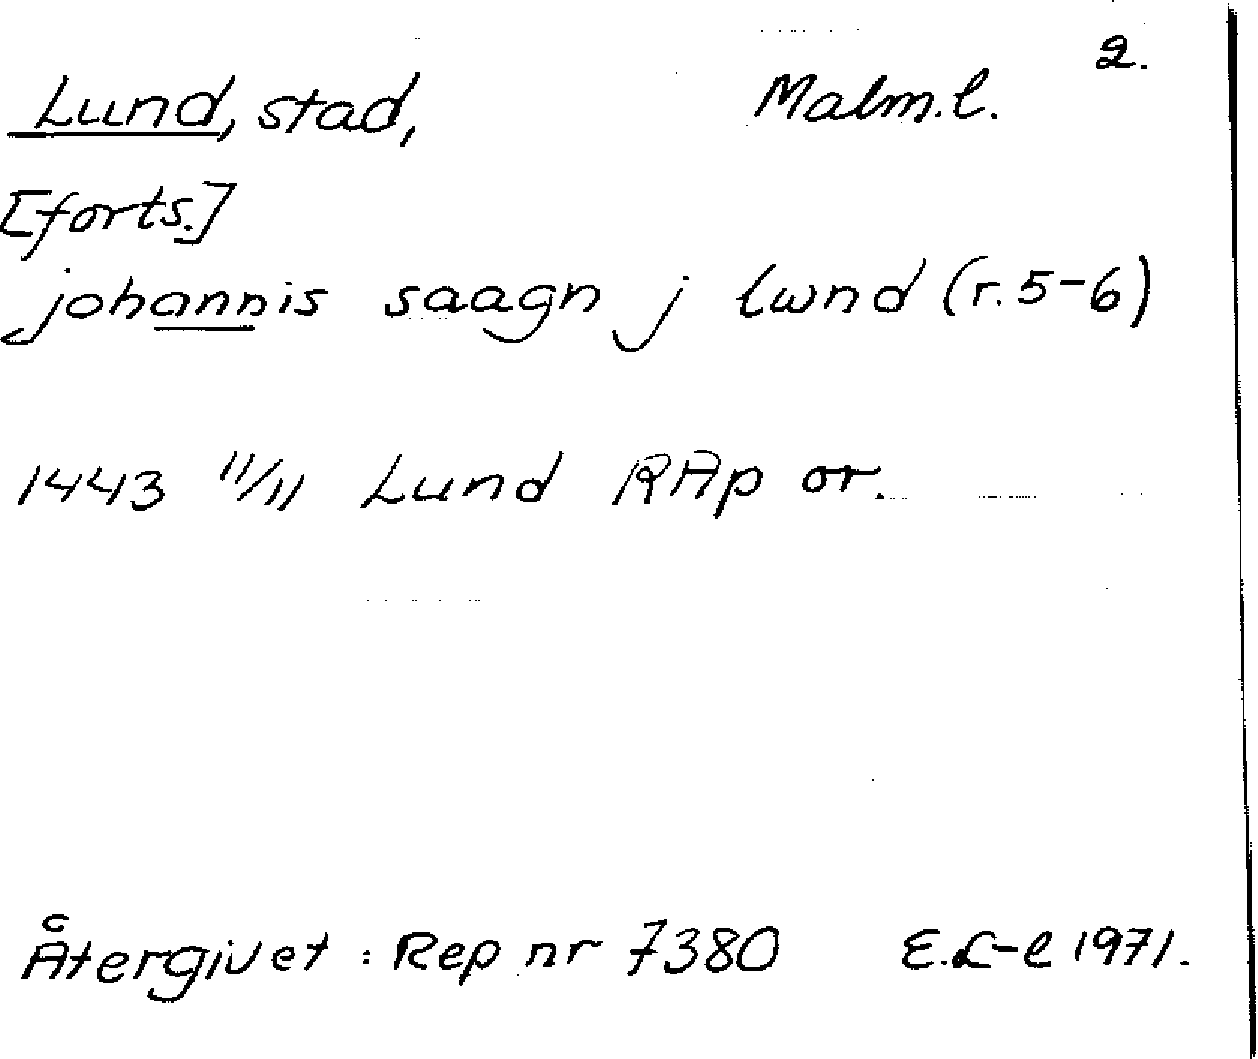 2.
Lund, stad, Malm.l.
[forts.]
johannis saagn j lwnd (r. 5-6)
1443 11/11 Lund RAp or.
Återgivet : Rep nr 7380 E.L-l 1971.